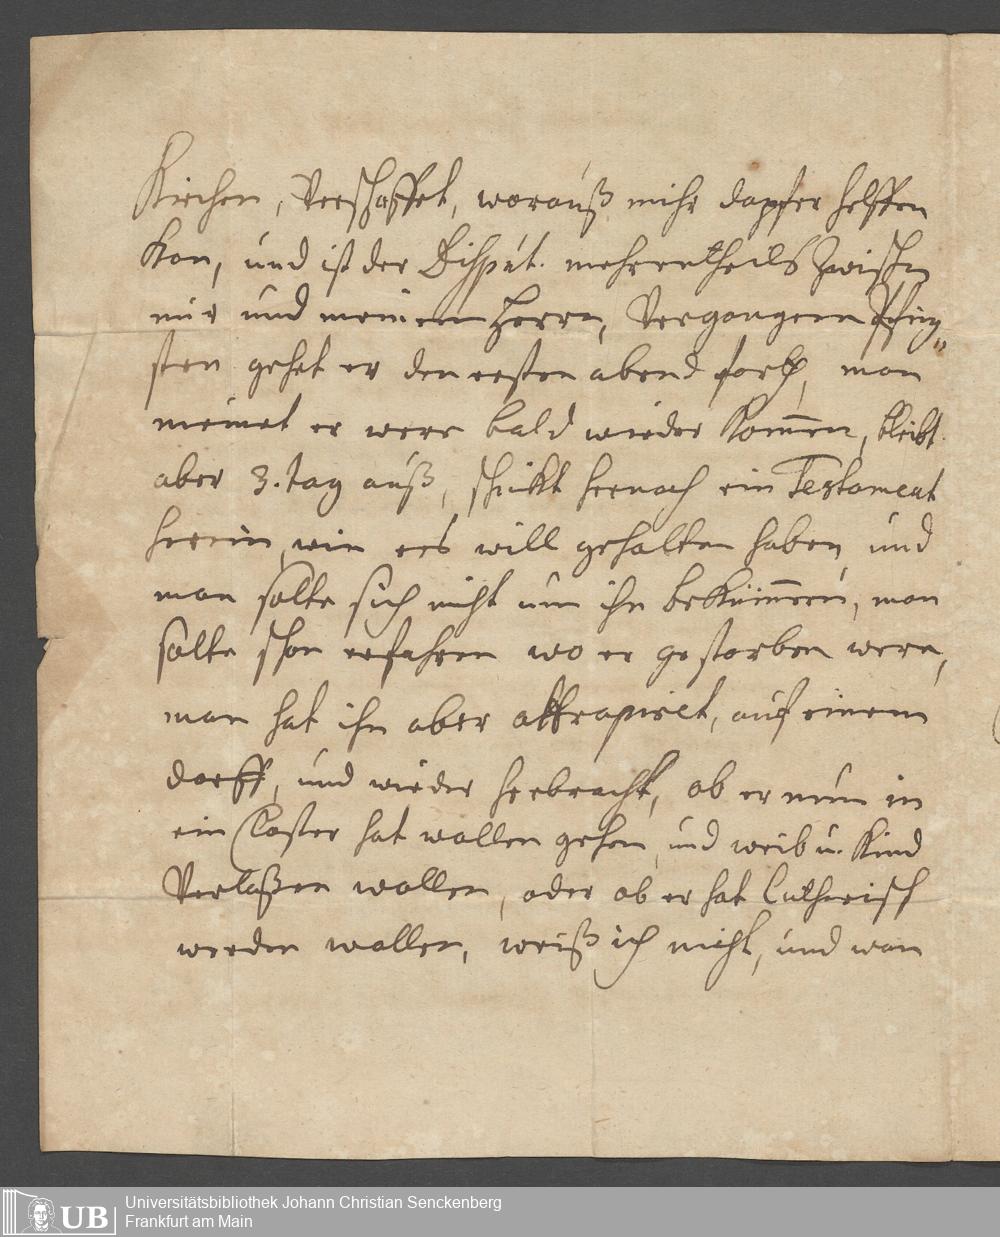 Kirchen, Verschaffet, worauß mihr dapfer helffen
kan, und ist der Disput. mehrentheils zwischen
mir und meinem Herrn, Vergangen Pfing„
sten gehet er den ersten abend forth, man
meinet er were bald wieder kom̄en, bleibt
aber 3. tag auß, schickt hernach ein Testament
herein, wie ers will gehalten haben, und
man solte sich nicht um ihn beküm̄ern, man
solte schon erfahren wo er gestorben were,
man hat ihn aber attrapiret, auf einem
dorff, und wieder herbracht, ob er nun in
ein Closter hat wollen gehen, und weib u. Kind
Verlaßen wollen, oder ob er hat Lutherisch
werden wollen, weiß ich nicht, und wan
UB
Universitätsbibliothek Johann Christian Senckenberg
Frankfurt am Main